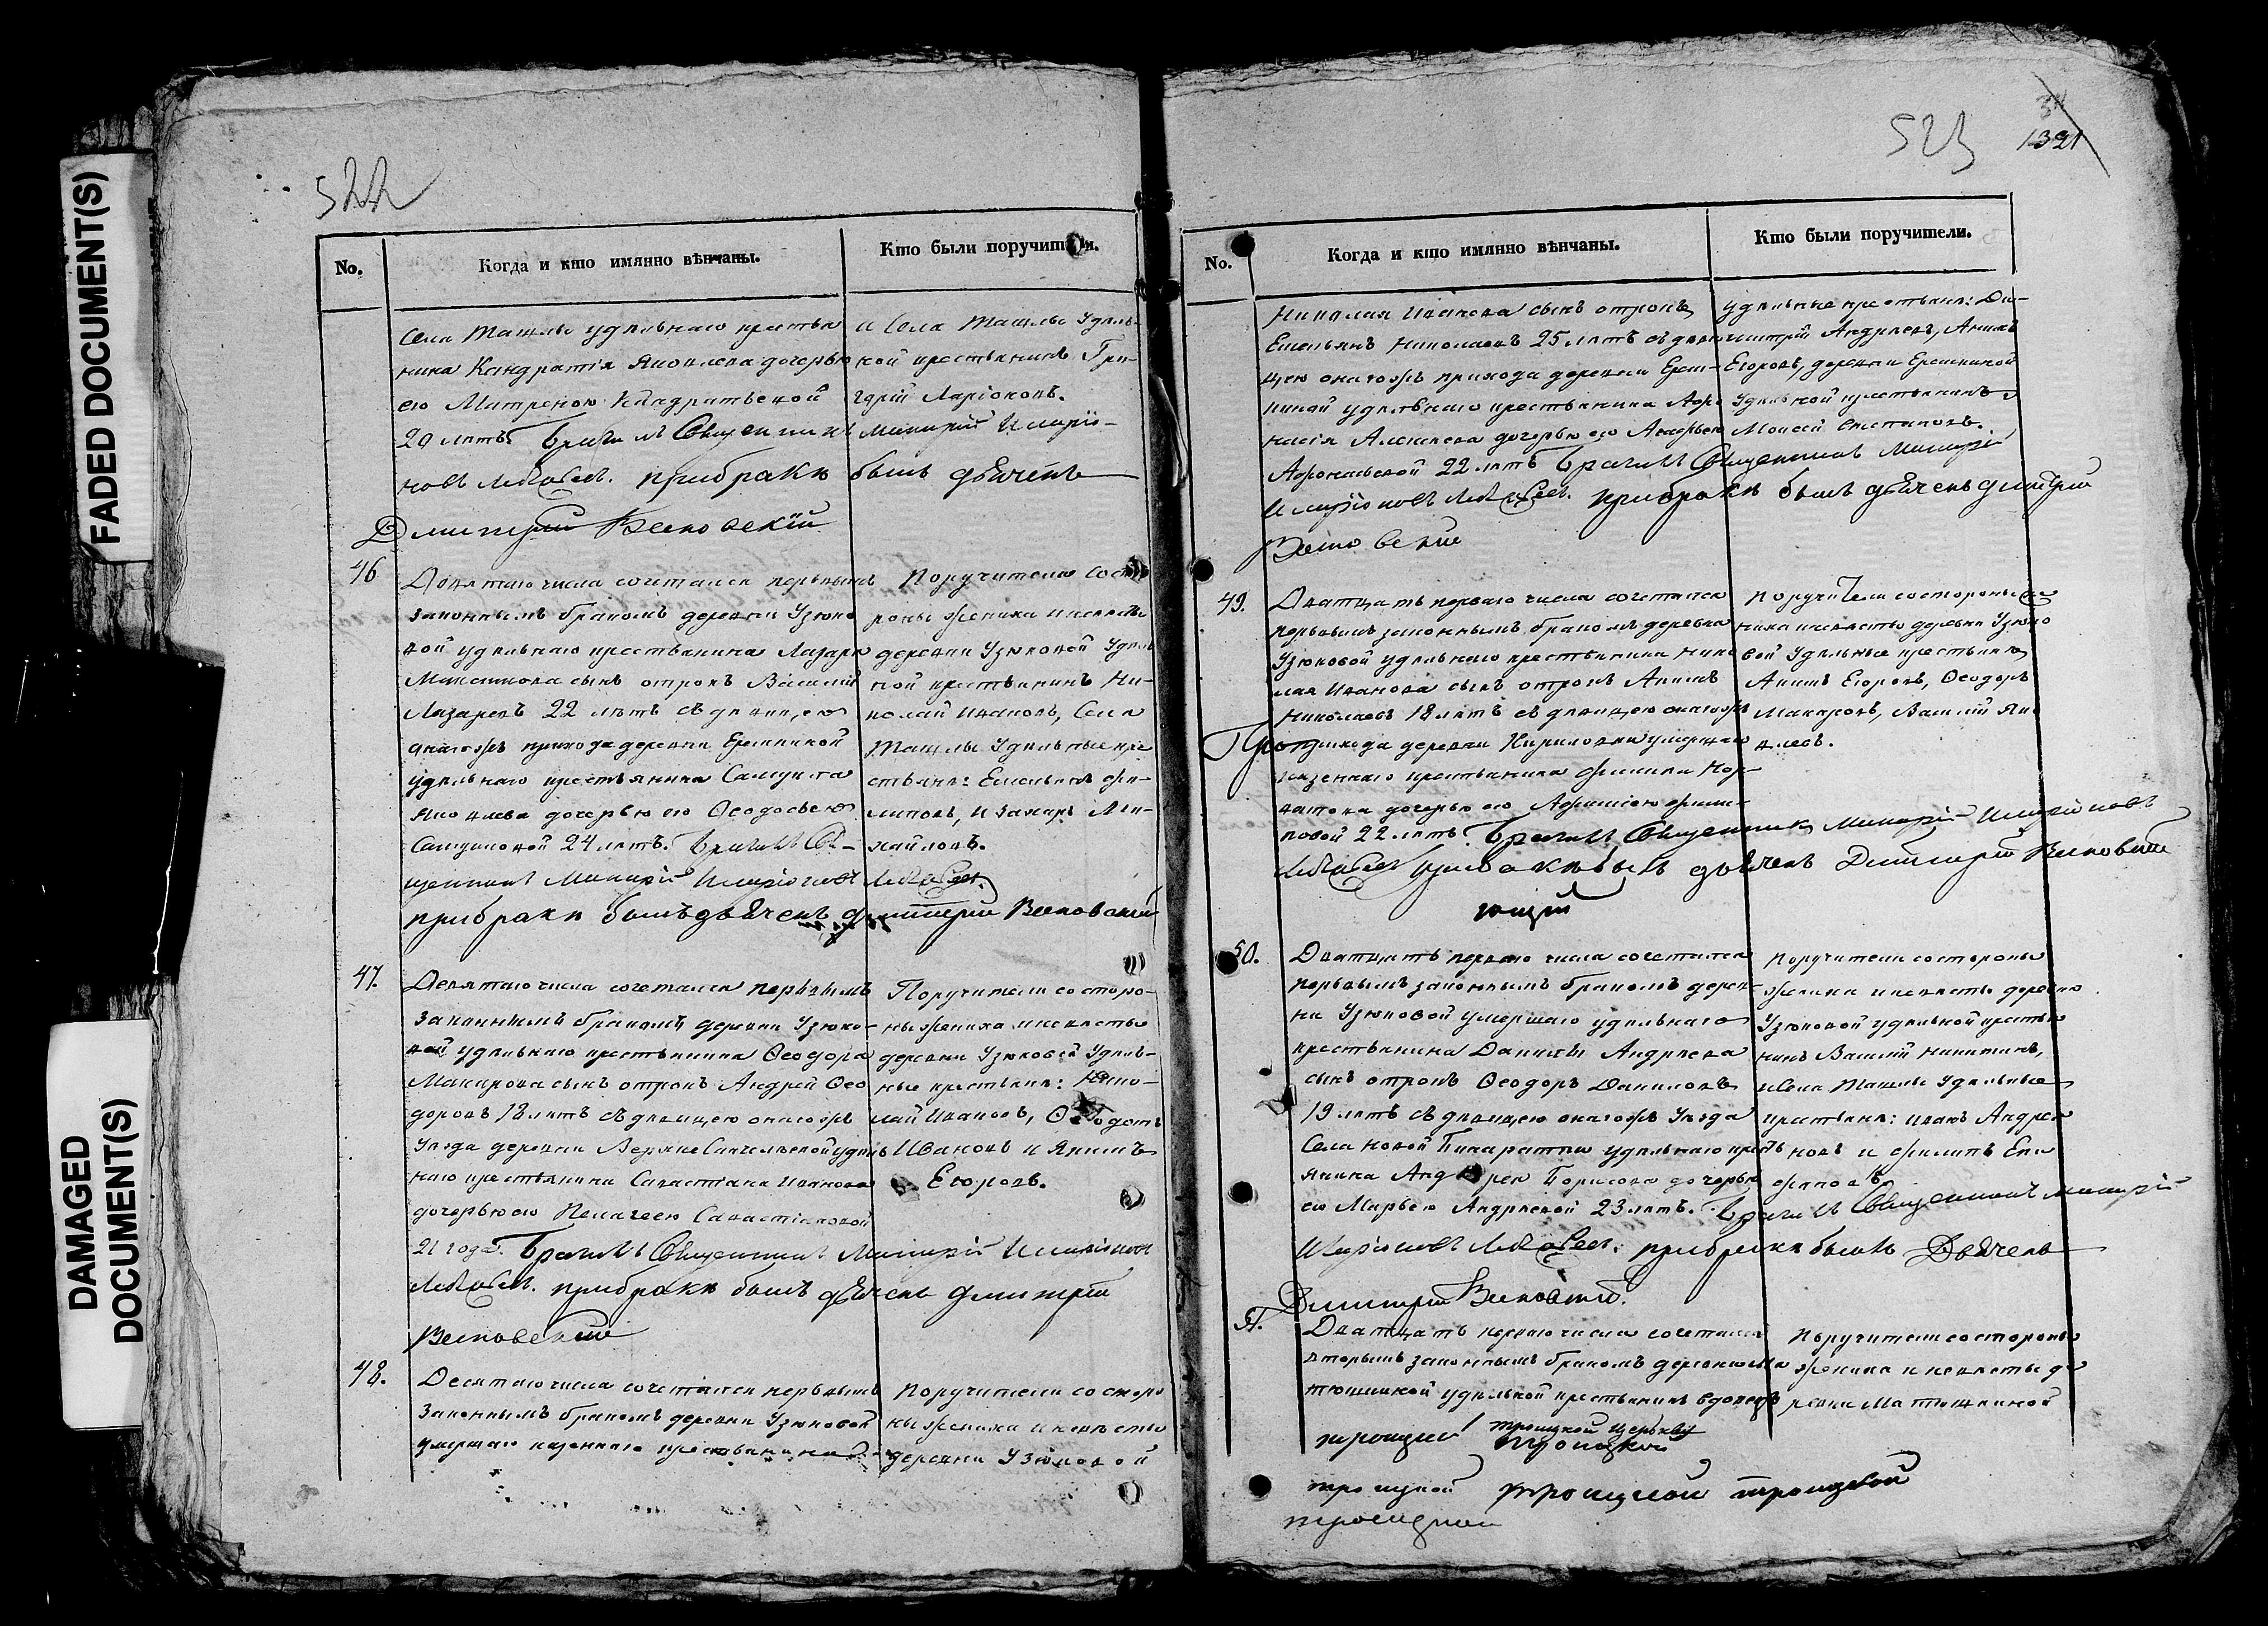 FADED DOCUMENT(S)
DAMAGED
DOCUMENT(S)
522
No.
Когда и кто имянно вѣнчаны.
Кто были поручители.
села Ташлы удѣльнаго крестья
нина Кандратія Яковлева дочерью
его Матреною Кандратьевой
20 лѣтъ. Священникъ
при бракѣ былъ дьячекъ
Дмитрій
и села Ташлы Удѣль-
ной крестьянинъ Гри-
горій Ларіоновъ.
46
Девятаго числа сочетался первымъ
законнымъ бракомъ деревни Узюко
вой удѣльнаго крестьянина Лазаря
Максимова сынъ отрокъ Василій
Лазаревъ 22 лѣтъ съ девицею
онагожъ прихода деревни Еремкиной
удѣльнаго крестьянина Самуила
Яковлева дочерью его Ѳеодосьею
Самуиловой 24 лѣтъ.
при бракѣ былъ дьячекъ Дмитрій
Поручители со сто
роны жениха и невесты
деревни Узюковой Удѣль
ной крестьянинъ Ни-
колай Ивановъ, Села
Ташлы Удѣльные кре
стьяне: Емельянъ Фи-
липовъ, и Захаръ Ми-
хайловъ.
47.
Девятаго числа сочетался первымъ
законнымъ бракомъ деревни Узюко-
вой удѣльнаго крестьянина Ѳеодора
Макарова сынъ отрокъ Андрей Ѳео
доровъ 18 лѣтъ съ девицею онагожъ
Уѣзда деревни удѣль
наго крестьянина Савастіана Иванова
дочерью его Пелагеею Савастіановой
21 года. Священникъ
при бракѣ былъ дьячекъ Дмитрій
Поручители со сторо-
ны жениха и невесты
деревни Узюковой Удѣль-
ные крестьяне: Нико-
лай Ивановъ, Ѳедотъ
Ивановъ и Якимъ
Егоровъ.
48.
Десятаго числа сочетался первымъ
законнымъ бракомъ деревни Узюковой
умершаго казеннаго крестьянина
Поручители со сторо
ны жениха и невесты
деревни Узюковой
523
1321
No.
Когда и кто имянно вѣнчаны.
Кто были поручители.
Николая Иванова сынъ отрокъ
Емельянъ Николаевъ 25 лѣтъ съ деви
цею онагожъ прихода деревни Ерем-
киной удѣльнаго крестьянина Афо
насія Алексѣева дочерью его
Афонасьевой 22 лѣтъ Священникъ
при бракѣ былъ дьячекъ Дмитрій
Удѣльные крестьяне: Ди-
митрій Андреевъ, Якимъ
Егоровъ, деревни Еремкиной
Удѣльной крестьянинъ
Моисей Степановъ.
49.
Дватцать перваго числа сочетался
первымъ законнымъ бракомъ деревни
Узюковой удѣльнаго крестьянина Нико
лая Иванова сынъ отрокъ Якимъ
Николаевъ 18 лѣтъ съ девицею онагожъ
прихода деревни Кириловки умершаго
казеннаго крестьянина Филипа
дочерью его Филип-
повой 22 лѣтъ. Священникъ
былъ дьячекъ Дмитрій
ющій
Поручители со стороны же
ниха и невесты деревни Узюко
вой Удѣльные крестьяне
Якимъ Егоровъ, Ѳеодоръ
Макаровъ, Василій Яко
влевъ.
50.
Дватцать перваго числа сочетался
первымъ законнымъ бракомъ дерев-
ни Узюковой умершаго удѣльнаго
крестьянина Данилы Андреева
сынъ отрокъ Ѳеодоръ Даниловъ
19 лѣтъ съ девицею онагожъ Уѣзда
Села Новой Бинаратки удѣльнаго крест
янина Андрея Борисова дочерью
его Марьею Андреевой 23 лѣтъ. Священникъ
при бракѣ былъ Дьячекъ
Дмитрій
Поручители со стороны
жениха и невесты деревни
Узюковой удѣльной крестья
нинъ Василій Никитинъ,
и Села Ташлы Удѣльные
крестьяне: Иванъ Андрея
новъ и Филипъ Епи
фановъ.
51.
Дватцать перваго числа сочетался
вторымъ законнымъ бракомъ деревни Ма
тюшкиной удѣльной крестьянинъ вдовецъ
Поручители со стороны
жениха и невесты де
ревни Матюшкиной
троицкой церькви
троицкой
троицкой троицкой троицкой